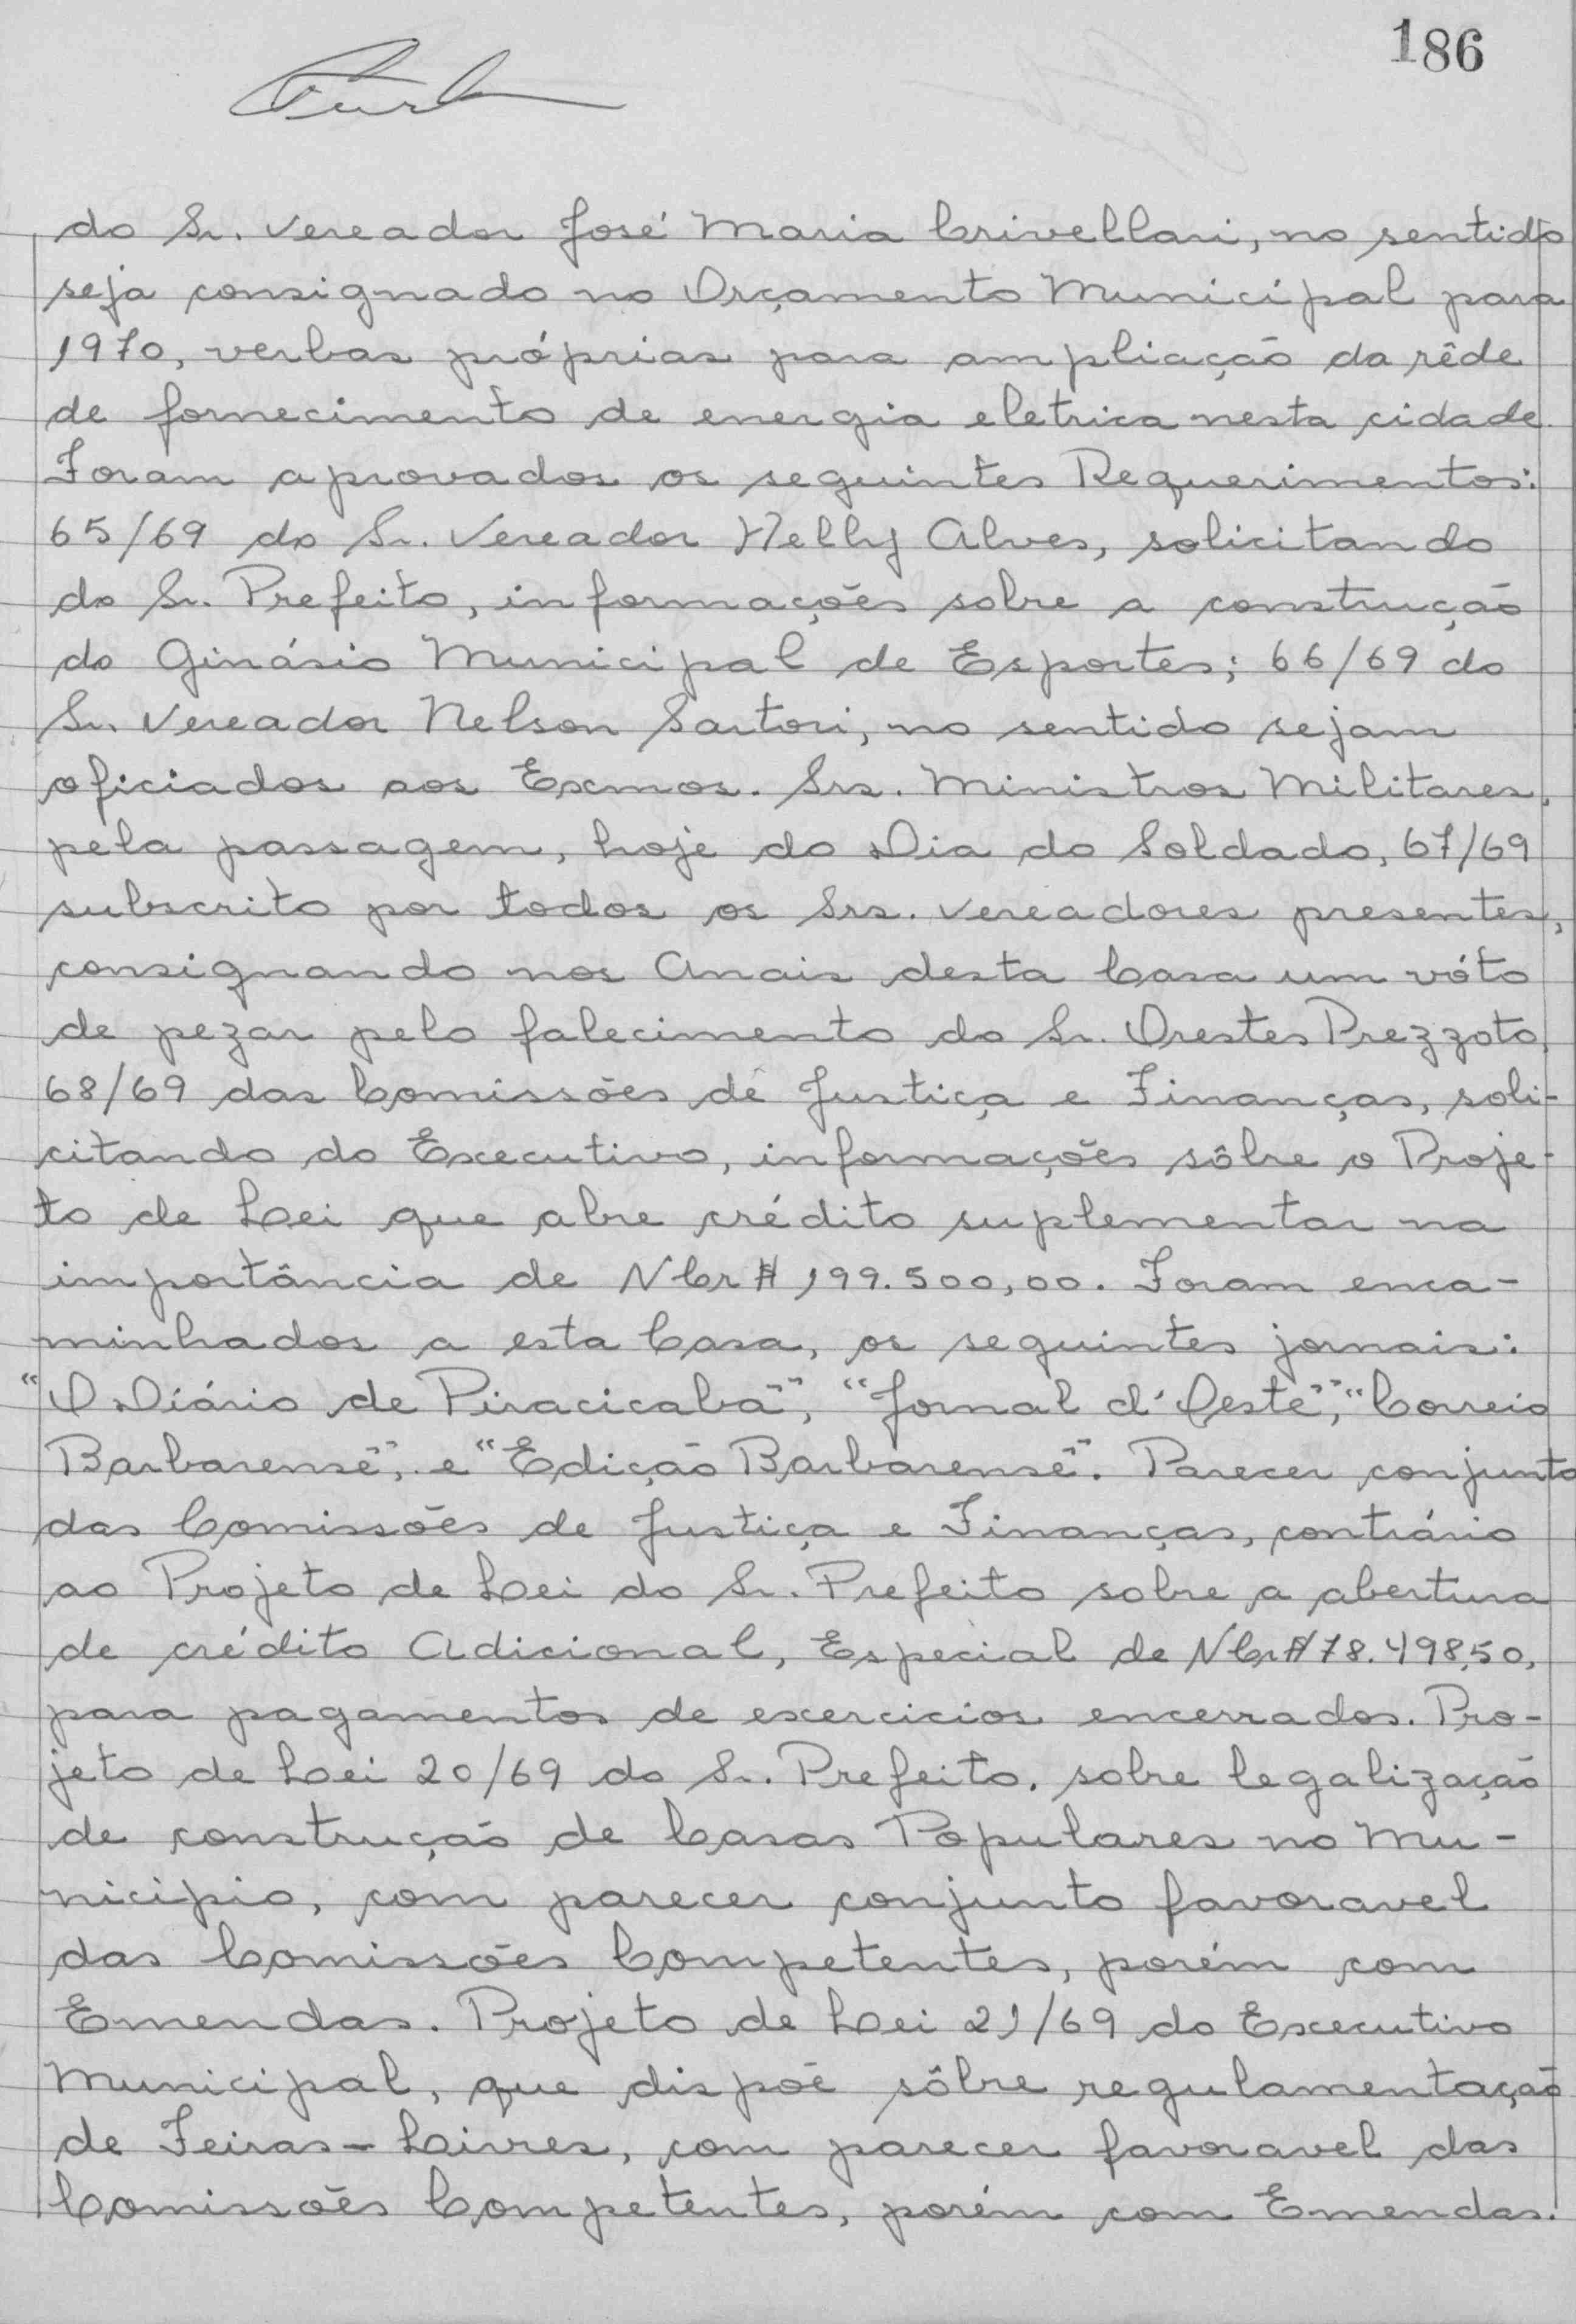 186
do Sr. Vereador José Maria Crivellari, no sentido
seja consignado no Orçamento Municipal para
1970, verbas próprias para ampliação da rêde
de fornecimento de energia eletrica nesta cidade.
Foram aprovados os seguintes Requerimentos:
65/69 do Sr. Vereador Helly Alves, solicitando
do Sr. Prefeito, informações sobre a construção
do Ginásio Municipal de Esportes; 66/69 do
Sr. Vereador Nelson Sartori, no sentido sejam
oficiados aos Exmos. Srs. Ministros Militares,
pela passagem, hoje do Dia do Soldado, 67/69
subscrito por todos os Srs. Vereadores presentes,
consignando nos Anais desta Casa um vóto
de pezar pelo falecimento do Sr. Orestes Prezzoto,
68/69 das Comissões de Justiça e Finanças, soli-
citando do Executivo, informações sôbre o Proje-
to de Lei que abre crédito suplementar na
importância de NCr$ 199.500,00. Foram enca-
minhados a esta Casa, os seguintes jornais:
"O Diário de Piracicaba", "Jornal d'Oeste", "Correio
Barbarense", e "Edição Barbarense". Parecer conjunto
das Comissões de Justiça e Finanças, contrário
ao Projeto de Lei do Sr. Prefeito sobre a abertura
de crédito Adicional, Especial de NCr$ 78.498,50,
para pagamentos de exercicios encerrados. Pro-
jeto de Lei 20/69 do Sr. Prefeito, sobre legalização
de construção de Casas Populares no Mu-
nicipio, com parecer conjunto favoravel
das Comissões Competentes, porém com
Emendas. Projeto de Lei 21/69 do Executivo
Municipal, que dispõe sôbre regulamentação
de Feiras-Livres, com parecer favoravel das
Comissões Competentes, porém com Emendas.